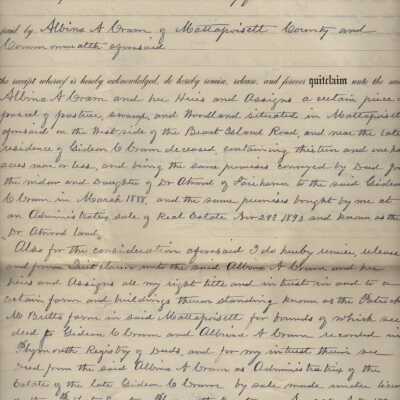 paid by Albina A Cram of Mattapoisett County and
Commonwealth aforesaid
the receipt whereof is hereby acknowledged, do hereby remise, release, and forever quitclaim unto the said
Albina A Cram and her Heirs and Assigns a certain piece or
parcel of pasture, swamp, and Woodland situated in Mattapoisett
aforesaid on the West side of the Bear Island Road, and near the late
residence of Gideon C Cram deceased, containing thirteen and one
acres more or less, and being the same premises conveyed by Deed from
the widow and Daughter of Dr Atwood of Fairhaven to the said Gideon
C Cram in March 1888, and the same premises bought by me at
an Administrators sale of Real Estate Nov 1893 and known as the
Dr. Atwood land,
Also for the consideration aforesaid I do hereby remise, release
and forever Quitclaim unto the said Albina A Cram and her
heirs and Assigns all my right title and interest in and to a
certain farm and buildings thereon standing known as the
farm in said Mattapoisett for bounds of which see
deed to Gideon C Cram and Albina A Cram recorded in
Plymouth Registry of Deeds, and for my interest therein see
Deed from the said Albina A Cram as Administratrix of the
Estate of the late Gideon C Cram by sale made under